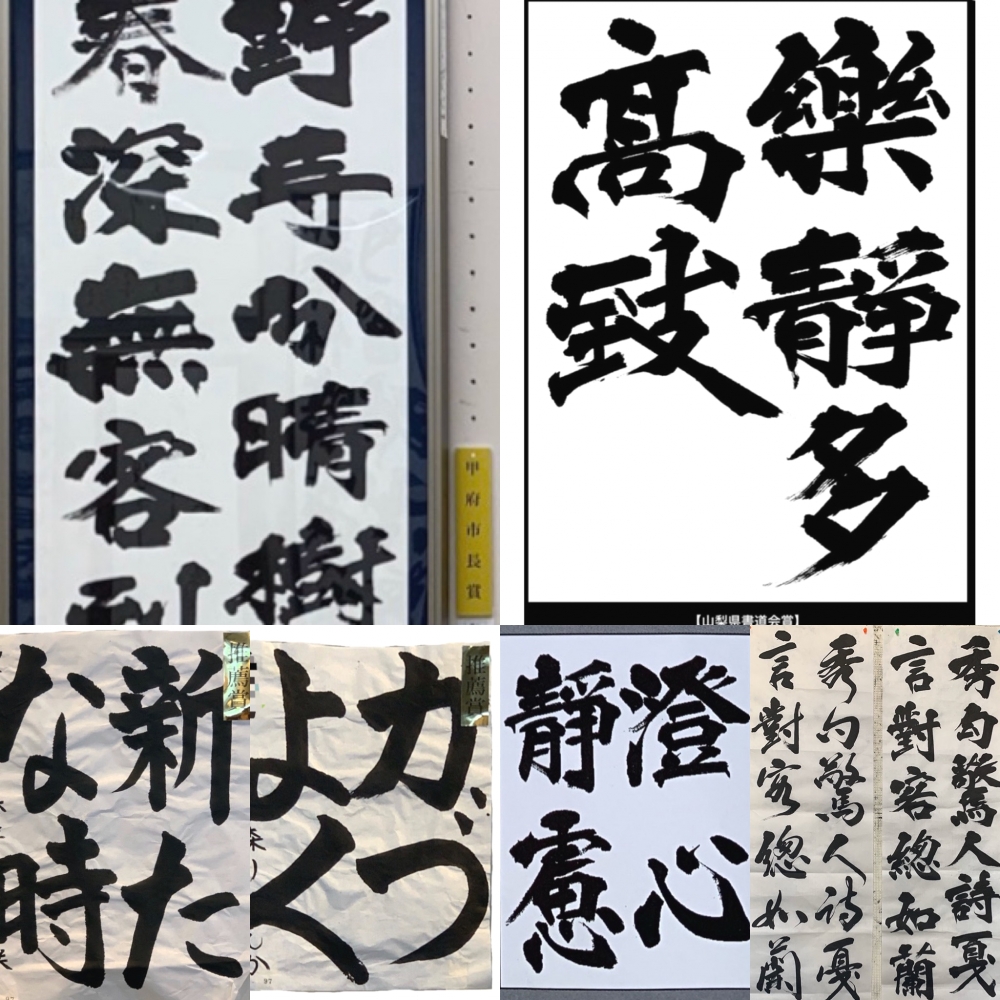 野寺分晴樹
春深無客到
甲府市長賞
樂靜多
髙致
【山梨県書道会賞】
推薦賞
新た
な時
推薦賞
力づ
よく
澄心
靜慮
秀句驚人詩戛
言對客總如蘭
秀句驚人詩戛
言對客總如蘭